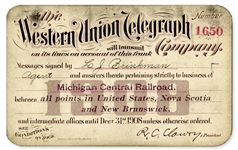 The Number
Western Union Telegraph 1650
will transmit Company.
on its lines on account of this frank
Messages signed by H. J. Brinkman
Agent and answers thereto pertaining strictly to business of
Michigan Central Railroad,
between all points in United States, Nova Scotia
and New Brunswick,
and intermediate offices until Dec. 31st 1908 unless otherwise ordered.
R. C. Clowry, President